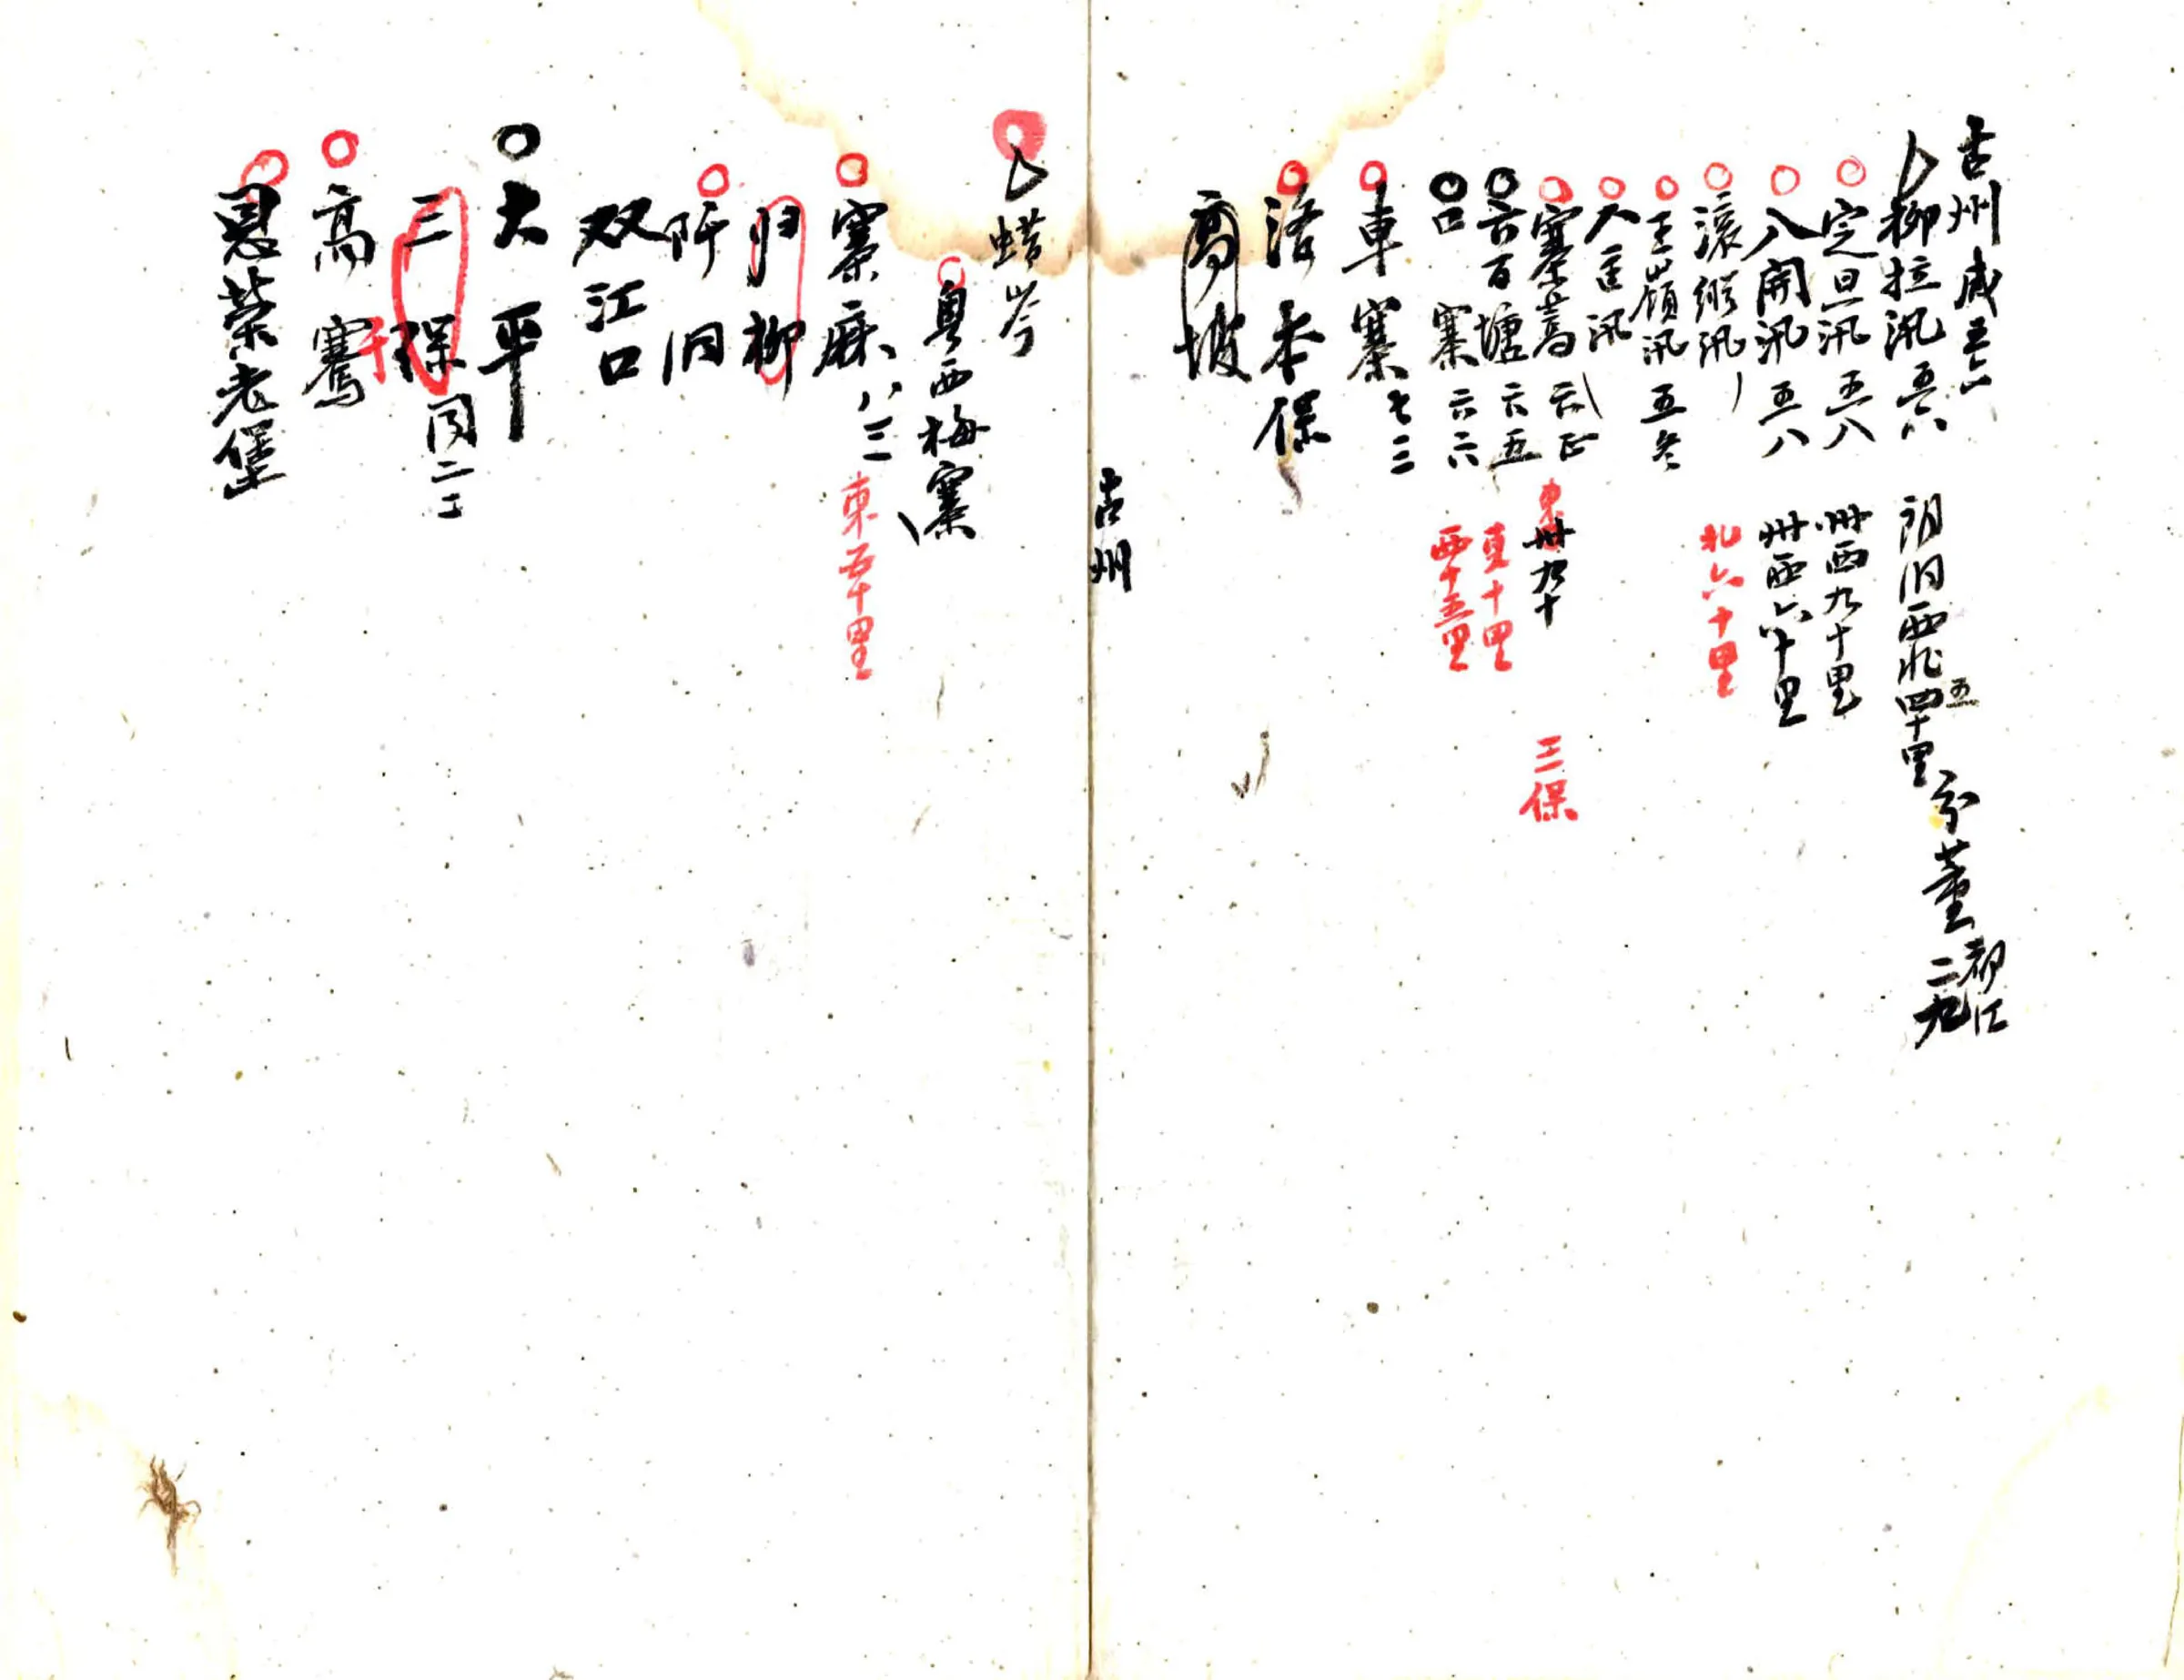 古州 咸五六
柳拉汛 五六 朗洞西北四十里 五 分董 都江 二九
定旦汛 五八 卅西九十里
八開汛 五八 卅西六十里
滚縱汛 北六十里
王嶺汛 五冬
大匡汛
寨蒿 六正 東 卅九十 三保
六百塘 六五 東十里
口寨 六六 西十五里
車寨 七三
洛本保
高坡
古州
蜡岑
粤西梅寨
寨麻 八三 東五十里
归柳
阡洞
双江口
太平
三保 同二二
高騫 千
恩榮老堡